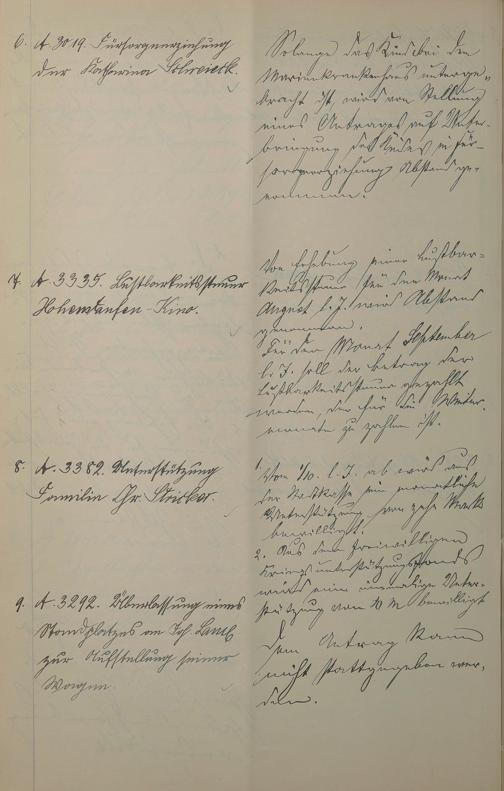 6. A. 3019. Fürsorgeerziehung
der Katharina
Solange das Kind bei dem
Marienkrankenhaus unterge-
bracht ist, wird von Stellung
eines Antrages auf Unter-
bringung des Kindes in Für-
sorgeerziehung Abstand ge-
nommen.
7. A. 3335. Lustbarkeitssteuer
Hohenstaufen-Kino.
Von Erhebung einer Lustbar-
keitssteuer für den Monat
August l. J. wird Abstand
genommen.
Für den Monat September
l. J. soll der Betrag der
Lustbarkeitssteuer gezahlt
werden, der für die Winter-
monate zu zahlen ist.
8. A. 3382. Unterstützung
Familie Chr. Striebel.
1. Vom 1/10. l. J. ab wird aus
der Stadtkasse eine monatliche
Unterstützung von zehn Mark
bewilligt.
2. Aus dem freiwilligen
Kriegsunterstützungsfonds
wird eine einmalige Unter-
stützung von M bewilligt
9. A. 3292. Überlassung eines
Standplatzes an Joh.
zur Aufstellung seiner
Wagen.
Dem Antrag kann
nicht stattgegeben wer-
den.